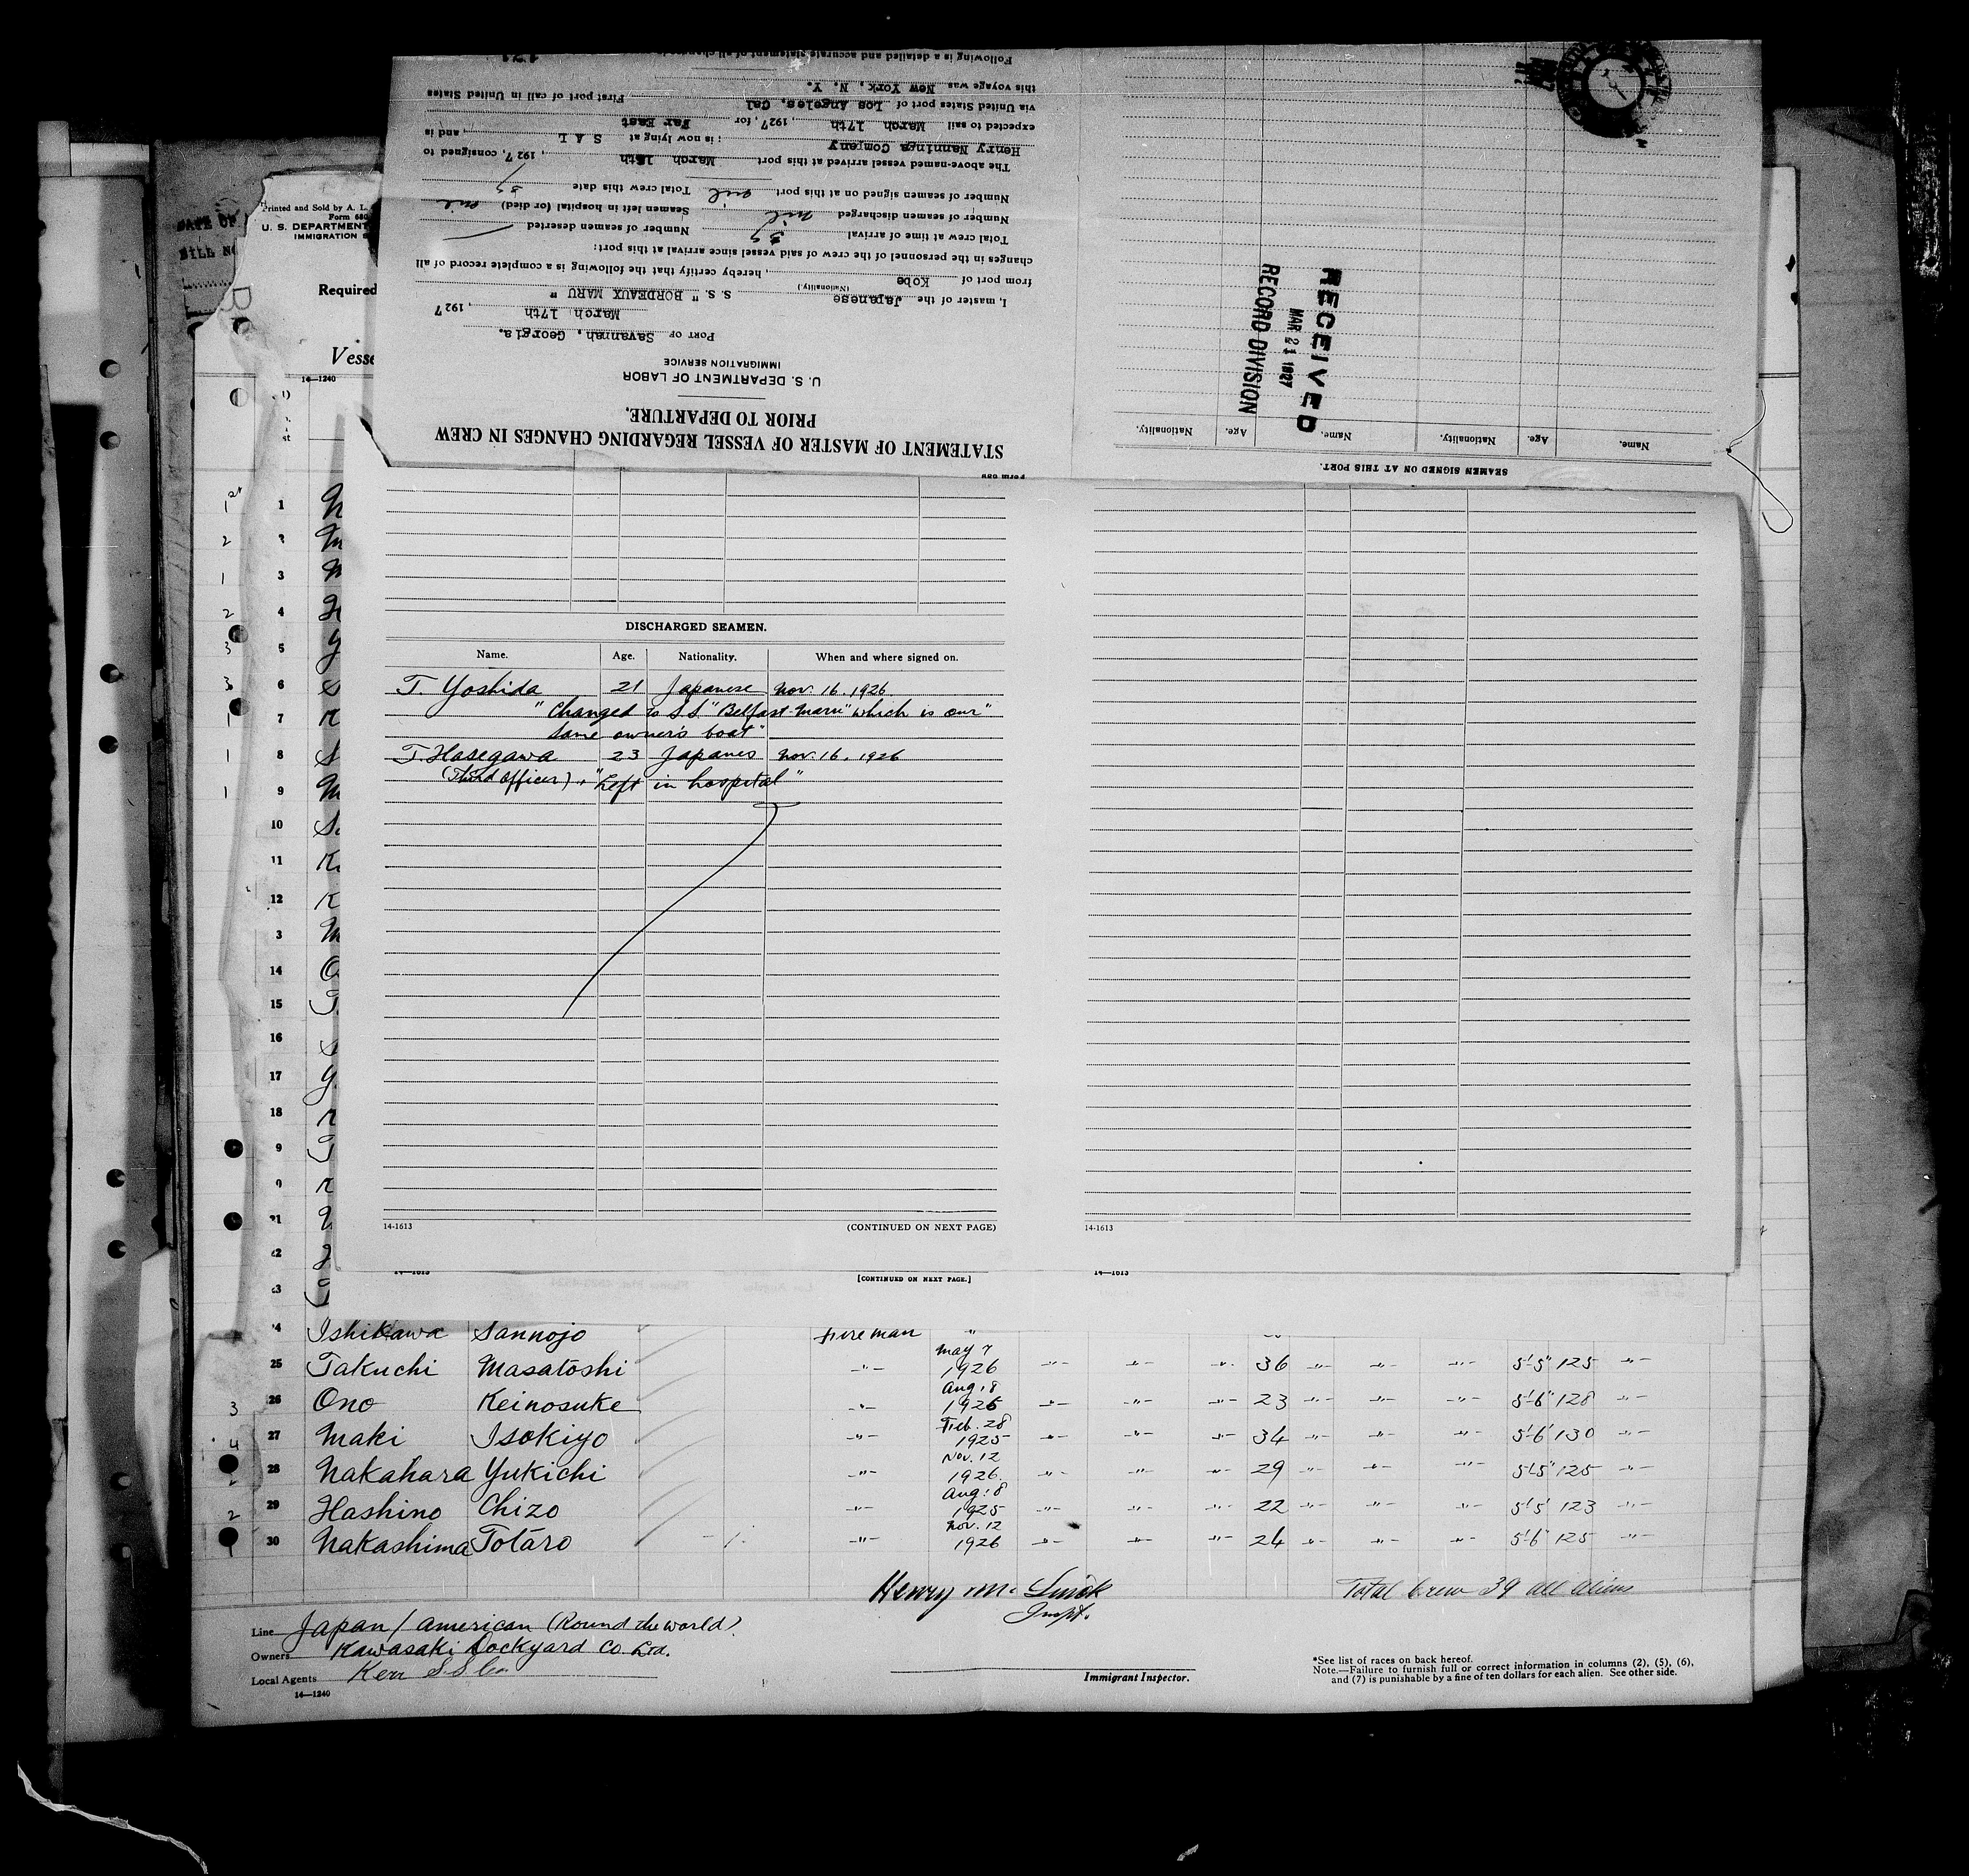 Following is a detailed and accurate statement of all changes in
this voyage was New York, N. Y.
via United States port of Los Angeles, Cal First port of call in United States
expected to sail March 17th, 1927, for Far East
Henry Nanninga Company ; is now lying at S A L, and is
The above-named vessel arrived at this port March 16th, 1927, consigned to
Number of seamen signed on at this port nil Total crew this date 39
Number of seamen discharged nil Seamen left in hospital (or died) nil
Total crew at time of arrival 39 Number of seamen deserted
changes in the personnel of the crew of said vessel since arrival at this port:
from port of Kobe, hereby certify that the following is a complete record of all
(Nationality.)
I, master of the Japanese S. S. " BORDEAUX MARU "
March 17th, 1927
PORT OF Savannah, Georgia.
IMMIGRATION SERVICE
U. S. DEPARTMENT OF LABOR
PRIOR TO DEPARTURE.
STATEMENT OF MASTER OF VESSEL REGARDING CHANGES IN CREW
Form 689
RECEIVED
MAR 21 1927
RECORD DIVISION
Name. Age. Nationality. Name. Age. Nationality.
SEAMEN SIGNED ON AT THIS PORT.
Printed and Sold by A. L.
Form 680
U. S. DEPARTMENT
IMMIGRATION S
Required
Vesse
14—1240
DISCHARGED SEAMEN.
Name. Age. Nationality. When and where signed on.
T. Yoshida 21 Japanese Nov. 16. 1926
"Changed to S.S "Belfast-Maru" which is our"
same owner's boat"
T. Hasegawa 23 Japanes Nov. 16. 1926
(Third officer) "Left in hospital"
14-1613 (CONTINUED ON NEXT PAGE) 14-1613
14—1613 [CONTINUED ON NEXT PAGE.] 14—1613
Ishikawa Sannojo Fireman "
25 Takuchi Masatoshi -"- May 7 1926 -"- -"- -"- 36 -"- -"- -"- 5'-5" 125 -"-
26 Ono Keinosuke -"- Aug. 8 1925 -"- -"- -"- 23 -"- -"- -"- 5'-6" 128 -"-
27 Maki Isokiyo -"- Feb. 28 1925 -"- -"- -"- 34 -"- -"- -"- 5'-6" 130 -"-
28 Nakahara Yukichi -"- Nov. 12 1926 -"- -"- -"- 29 -"- -"- -"- 5'-5" 125 -"-
29 Hashino Chizo -"- Aug. 8 1925 -"- -"- -"- 22 -"- -"- -"- 5'-5" 123 -"-
30 Nakashima Totaro -"- Nov. 12 1926 -"- -"- -"- 24 -"- -"- -"- 5'-6" 125 -"-
Total Crew 39 all aliens
Line Japan / American (Round the world)
Owners Kawasaki Dockyard Co. Ltd.
Local Agents Kerr S S Co
14—1240
Immigrant Inspector.
*See list of races on back hereof.
Note.—Failure to furnish full or correct information in columns (2), (5), (6),
and (7) is punishable by a fine of ten dollars for each alien. See other side.